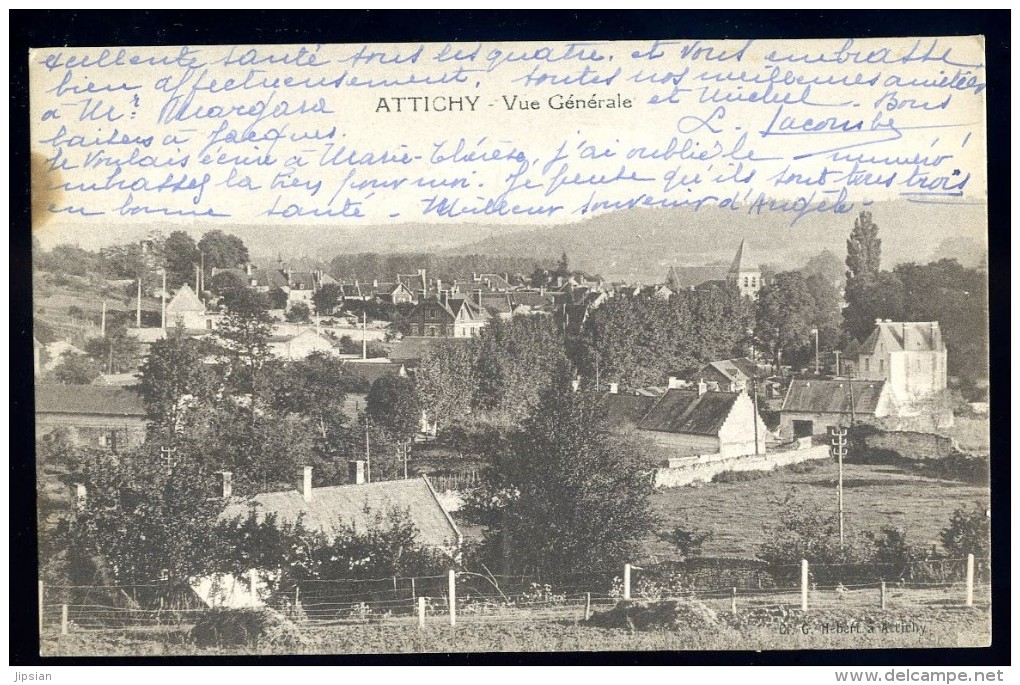 excellente santé tous les quatre, et vous embrasse
bien affectueusement. toutes nos meilleures amitiés
à Mr. Margara et Michel. Bons
ATTICHY - Vue Générale
baisers à Jacques. L. Lacombe
Je voulais écrire à Marie-Thérèse, j'ai oublié le numéro!
embrassez la bien pour moi. Je pense qu'ils sont tous trois
en bonne santé - Meilleur souvenir d'Angèle.
G. Hébert à Attichy
jipsian
www.delcampe.net